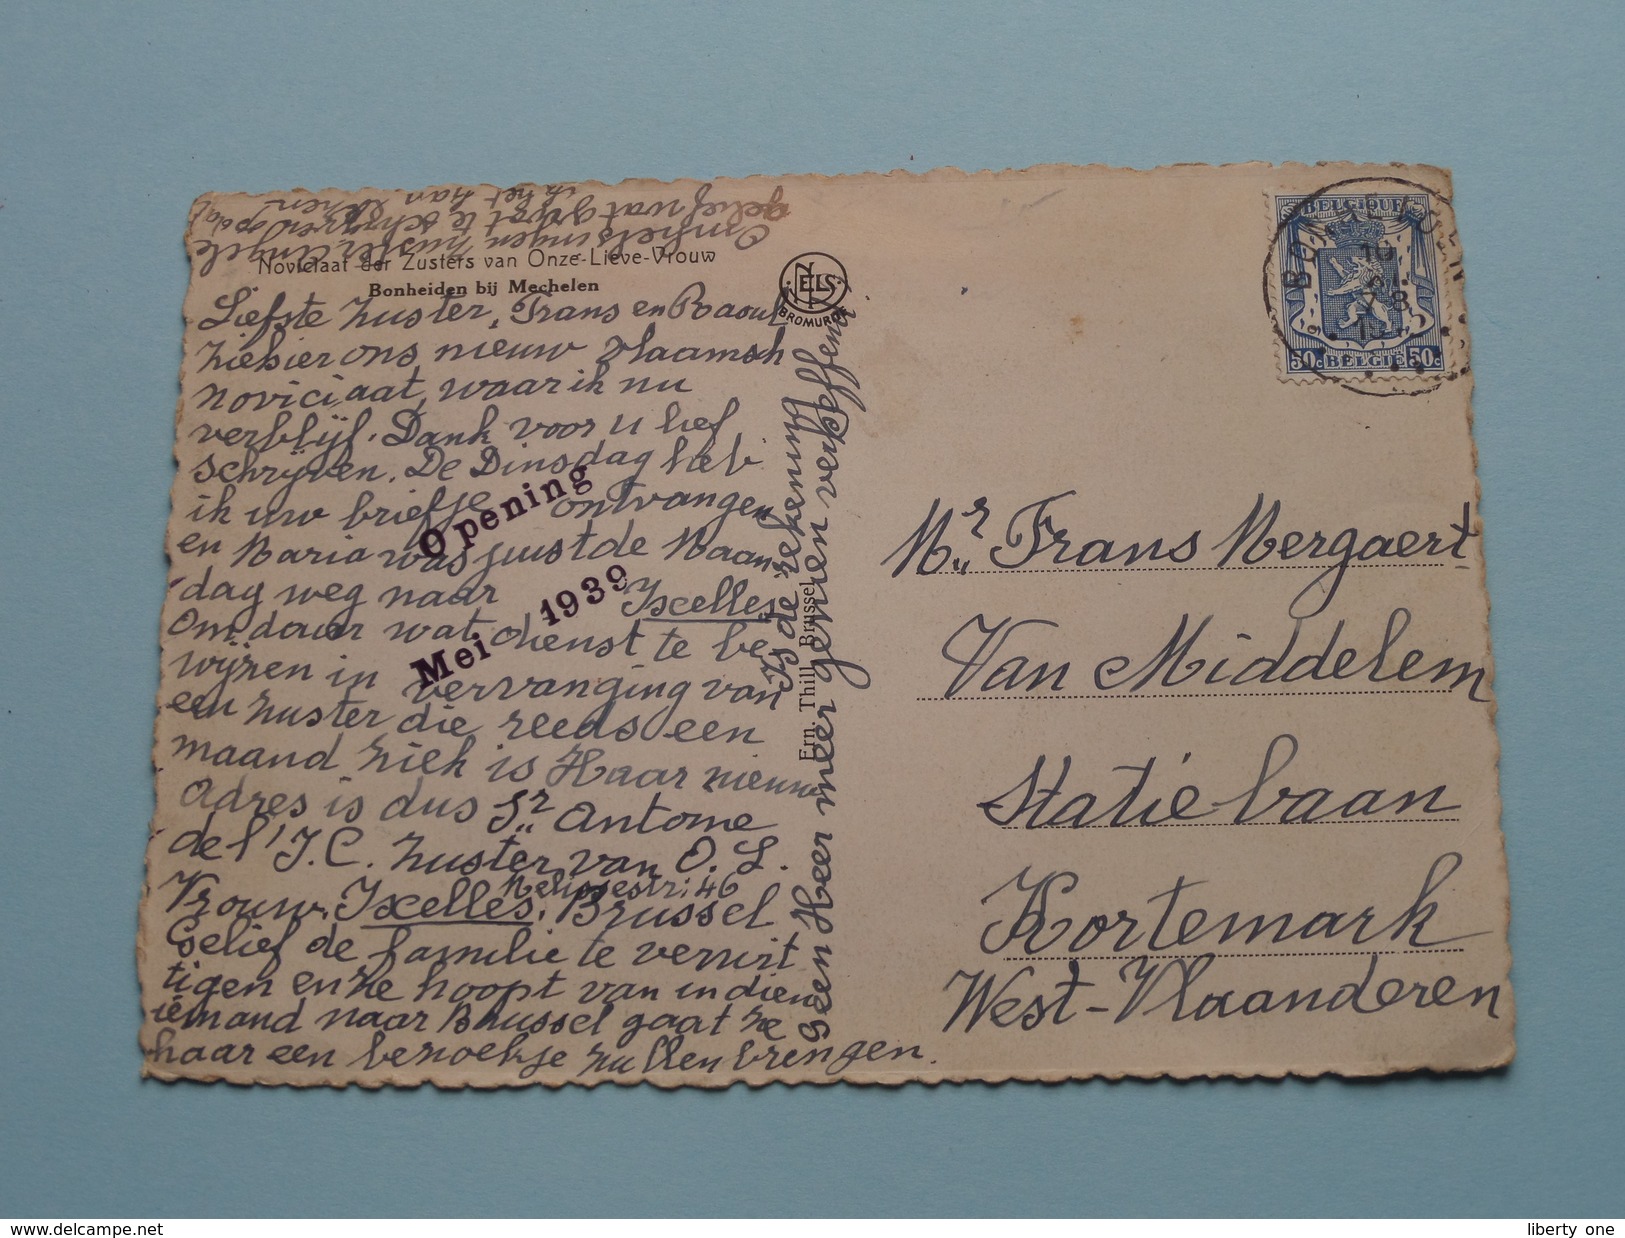 Noviciaat der Zusters van Onze-Lieve-Vrouw
Bonheiden bij Mechelen
Liefste zuster, Frans en Raoul
ziehier ons nieuw vlaamsch
noviciaat, waar ik nu
verblijf. Dank voor u lief
schrijven. De Dinsdag heb
ik uw briefje ontvangen
en Maria was juist de Maan-
dag weg naar Ixelles,
Om daar wat dienst te be-
wijzen in vervanging van
een zuster die reeds een
maand ziek is Haar nieuw
adres is dus Sr Antome
de l' I.C. zuster van O. L.
Vrouw. Ixelles, Brussel
46
Gelief de familie te verwit
tigen en ze hoopt van indien
iemand naar Brussel gaat ze
haar een bezoekje zullen brengen.
Opening
Mei 1939
Omhelsingen zuster Angele
gelief wat groot te schrijven opdat
ik het kan
Is de rekening
geen Heer meer gerien vereffend
Ern. Thill, Brussel
NELS
BROMURITE
BELGIQUE
50c BELGIË 50c
10
Mr Frans Mergaert
Van Middelem
Statiebaan
Kortemark
West-Vlaanderen
liberty one
www.delcampe.net